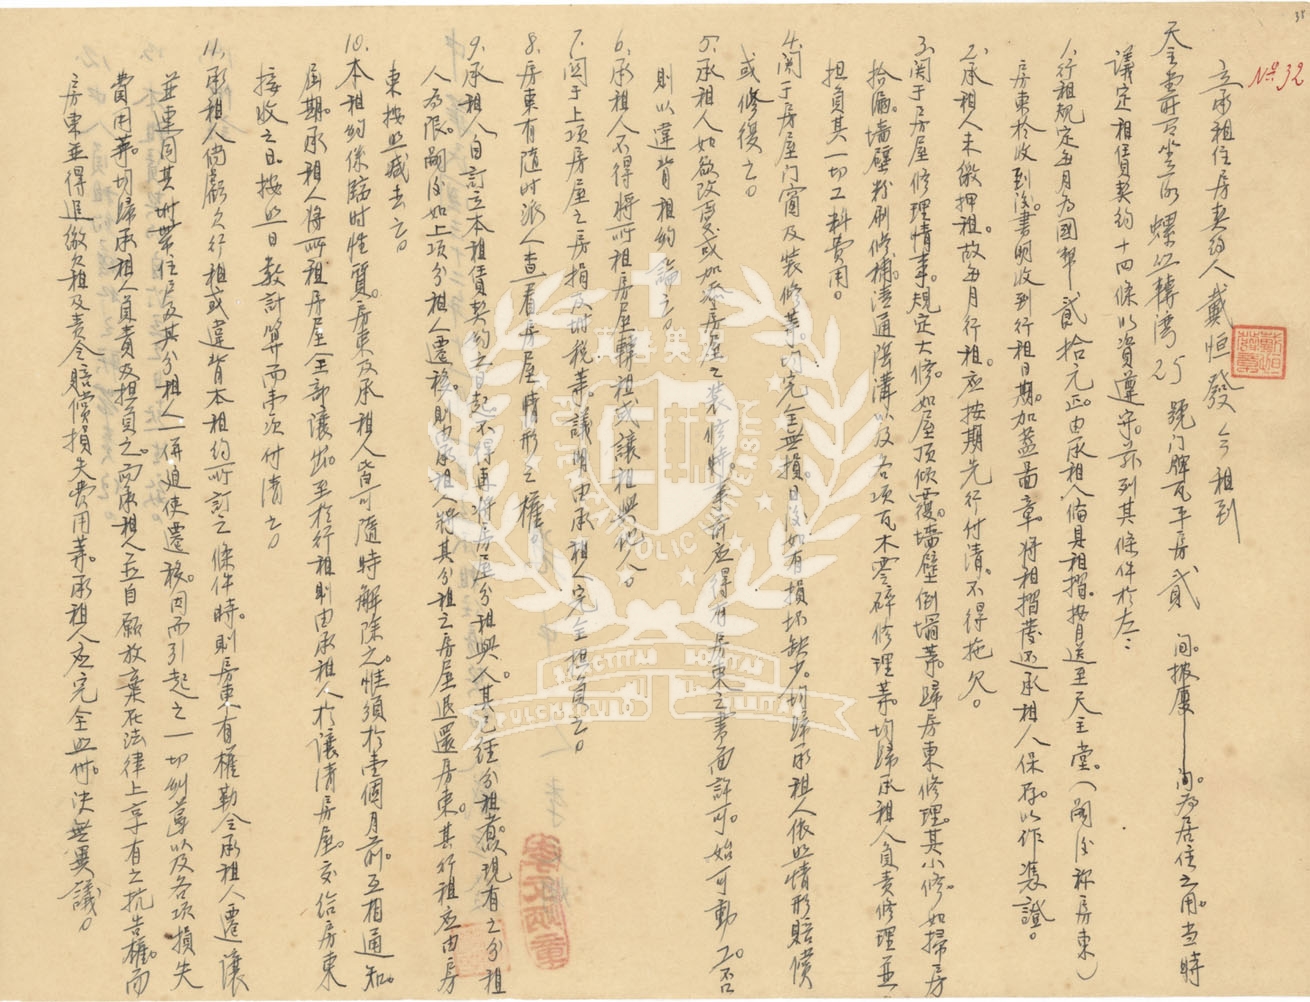 №32
立承租住房契約人戴恒發今租到
天主堂所有坐落螺絲轉灣25號門牌瓦平房貳間。披廈——間。為居住之用。當時
議定租賃契約十四條以資遵守。茲列其條件於左：
1.行租規定每月為國幣貳拾元正。由承租人備具租摺。按月送至天主堂。(閣後称房東)
房東於收到後。書明收到行租日期。加蓋圖章。將租摺發还承租人保存。以作憑證。
2.承租人未繳押租。故每月行租。應按期先行付清。不得拖欠。
3.関于房屋修理情事。規定大修。如屋頂傾覆。墻壁倒塌等。歸房東修理。其小修。如掃房
拾漏。墻壁粉刷修補。清通陰溝以及各項瓦木零碎修理等。均歸承租人負責修理並
担負其一切工料費用。
4.関于房屋门窗及裝修等。均完全無損。日後如有損坏缺少。均歸承租人依照情形賠償
或修復之。
5.承租人如欲改变或加添房屋之裝修時。事前應得有房東之書面許可。始可動工。否
則以違背租約論之。
6.承租人不得將所租房屋轉租或讓租與他人。
7.関于上項房屋之房捐及附稅等。議明由承租人完全担負之。
8.房東有隨时派人查看房屋情形之權。
9.承租人自訂立本租賃契約之日起。不得再將房屋分租與人。其已經分租者。以現有之分租
人為限。嗣後如上項分租人遷移。則由承租人將其分租之房屋退還房東。其行租應由房
東按照減去之。
10.本租約係臨时性質。房東及承租人皆可隨時解除之。惟須於壹個月前。互相通知。
屆期。承租人將所租房屋全部讓出。至於行租則由承租人於讓清房屋。交给房東
接收之日。按照日數計算而壹次付清之。
11.承租人倘虧欠行租或違背本租約所訂之條件時。則房東有權勒令承租人遷讓
並連同其附帶住户及其分租人一併迫使遷移。因而引起之一切糾葛以及各項損失
費用等。均歸承租人負責及担負之。而承租人並自願放棄在法律上享有之抗告權。而
房東並得追繳欠租及责令賠償損失費用等。承租人應完全照付。決無異議。